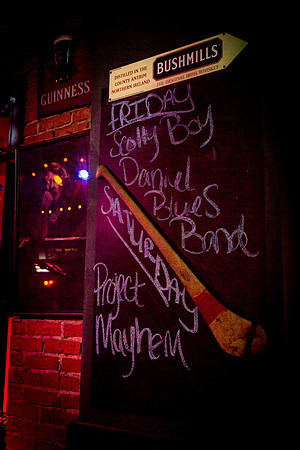 BUSHMILLS
DISTILLED IN THE
COUNTY ANTRIM
NORTHERN IRELAND
THE ORIGINAL IRISH WHISKEY
GUINNESS
FRIDAY
Scotty Boy
Daniel
Blues
Band
SATURDAY
Project
Mayhem